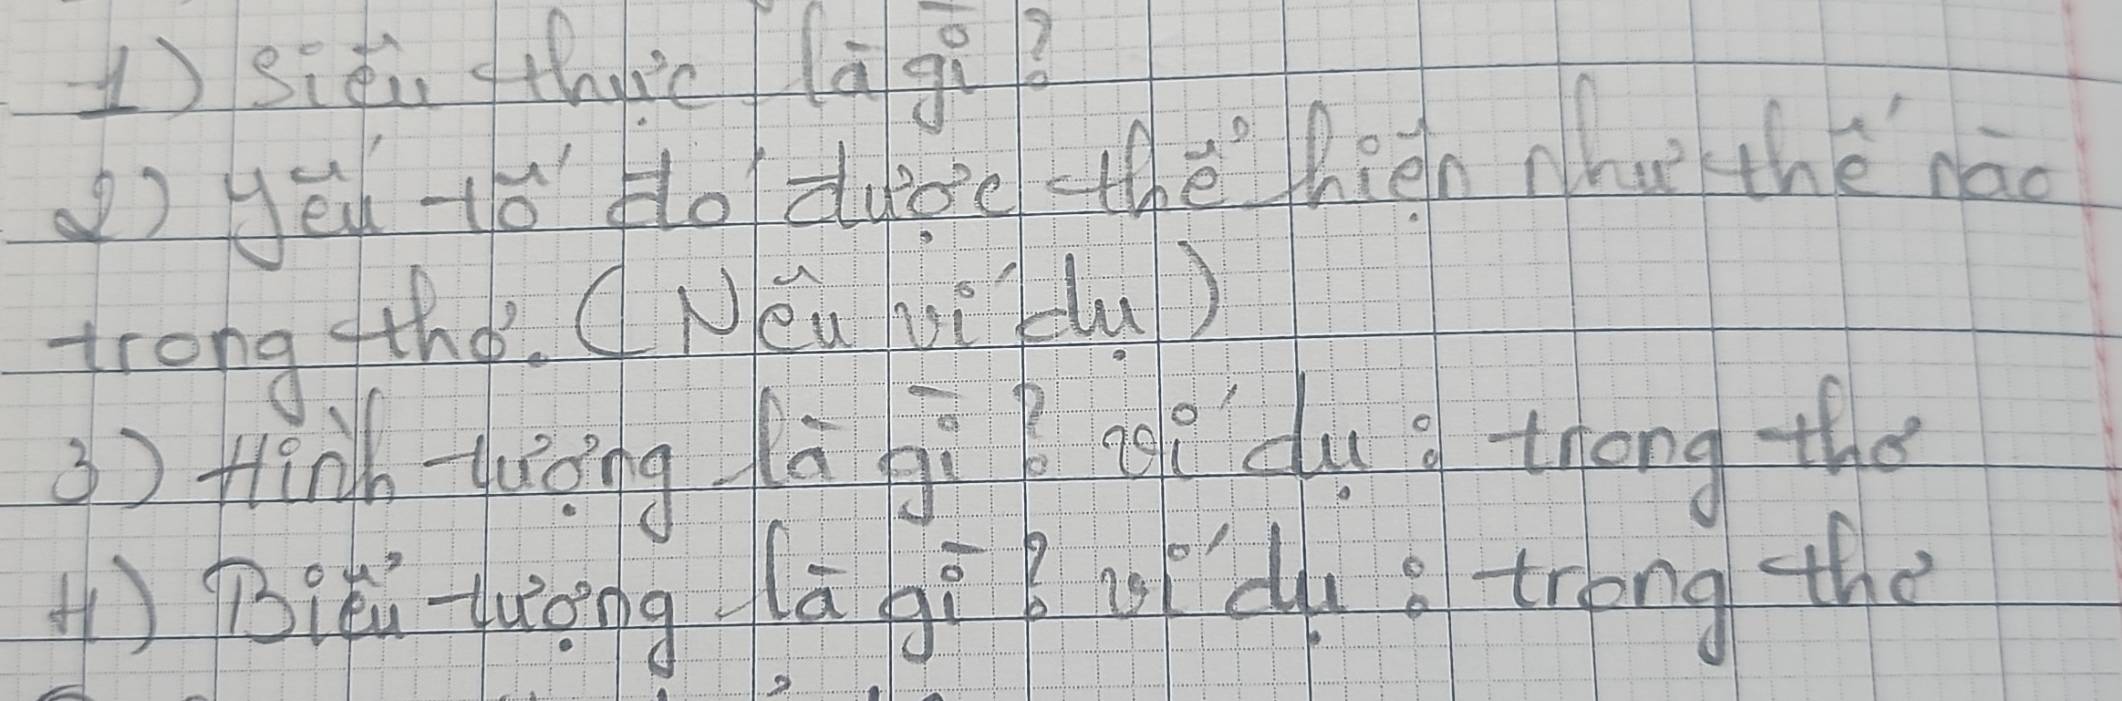 1) Siêu thực là gì?
2) Yếu tố đó được thể hiện như thế nào
trong thơ. (Nêu ví dụ)
3) Hình tượng là gì? ví dụ: trong thơ
4) Biểu tượng là gì? ví dụ: trong thơ